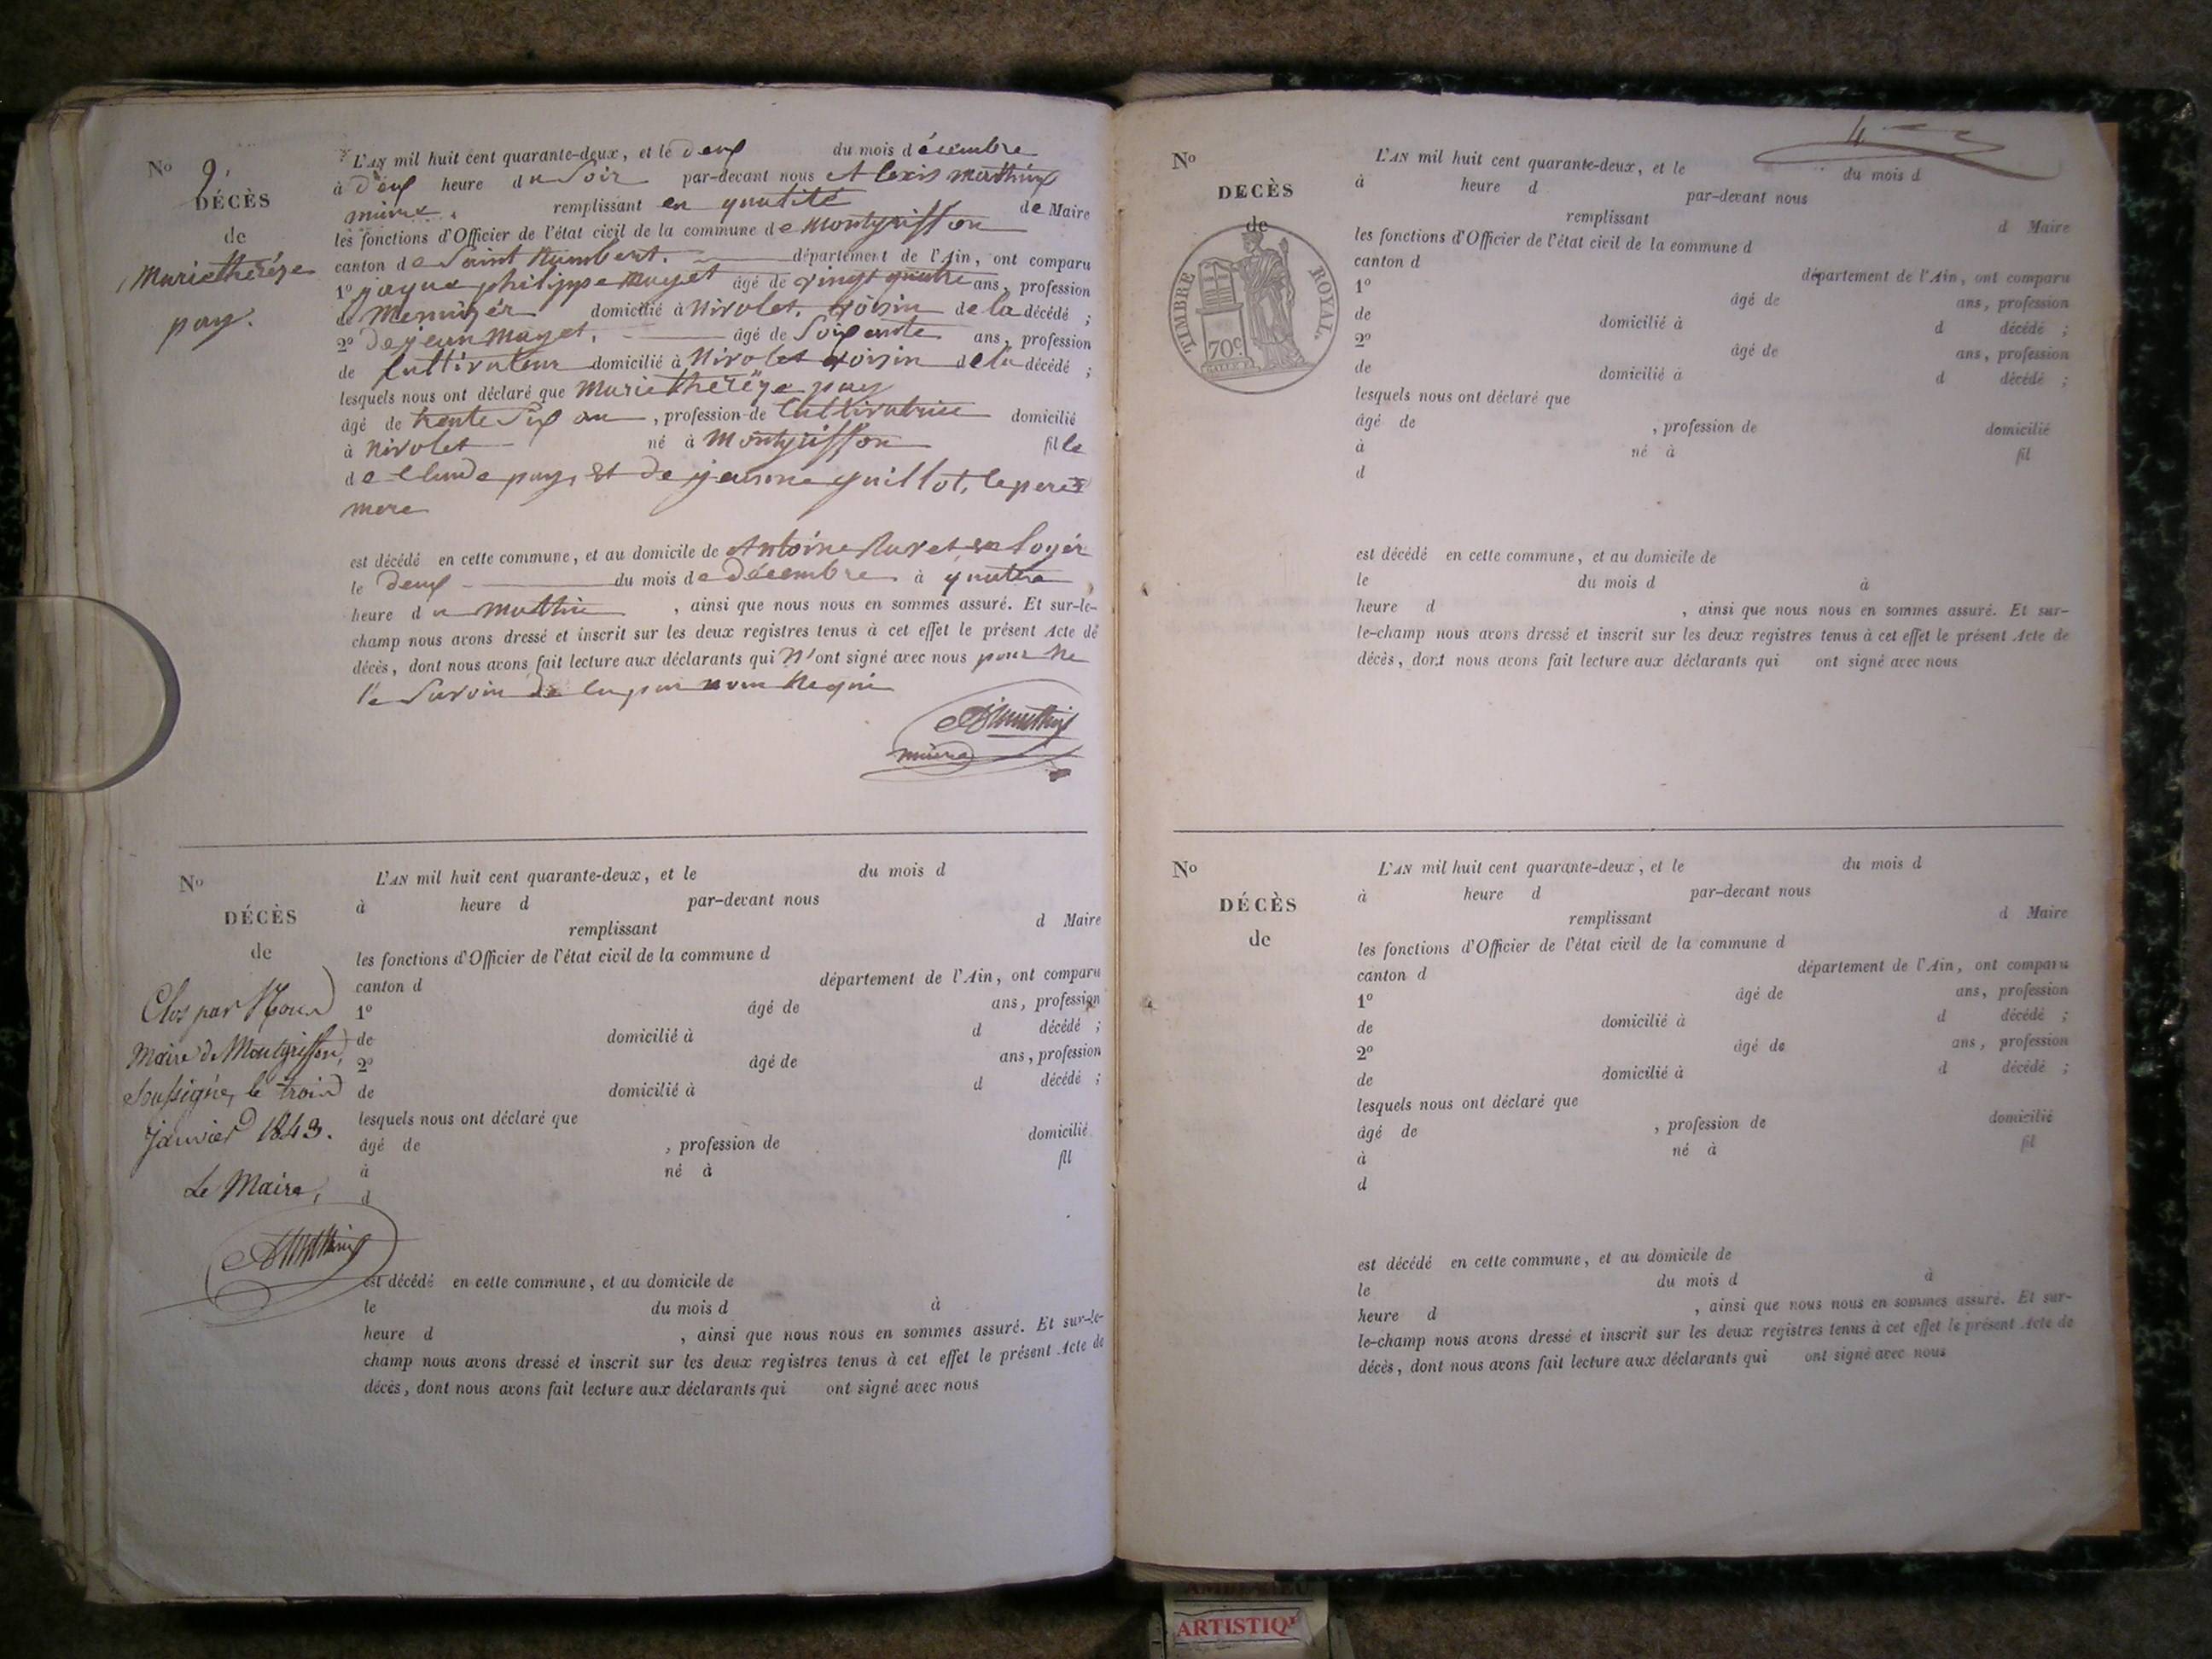 No 9.
DÉCÈS
de
Mariethereze
puy.
L'AN mil huit cent quarante-deux, et le deux du mois décembre
à deux heure du Soir par-devant nous Alexis mathieu
maire. remplissant en qualité de Maire
les fonctions d'Officier de l'état civil de la commune de Montgriffon
canton de Saint Rambert. département de l'Ain, ont comparu
1o philippe Maget âgé de vingt quatre ans, profession
de domicilié à Nivolet. voisin de la décédé ;
2o de jean Maget. âgé de Soixante ans, profession
de Cultivateur domicilié à Nivolet voisin de la décédé ;
lesquels nous ont déclaré que Mariethereze puy
âgé de trente Six an, profession de Cultivatrice domicilié
à Nivolet né à Montgriffon fille
de Claude puy, Et de jeanne guillot, le pere Et
mere
est décédé en cette commune, et au domicile de Antoine
le deux du mois de décembre à quatre
heure du mattin, ainsi que nous nous en sommes assuré. Et sur-le-
champ nous avons dressé et inscrit sur les deux registres tenus à cet effet le présent Acte de
décès, dont nous avons fait lecture aux déclarants qui N'ont signé avec nous pour Ne
le Savoir
maire
No
DÉCÈS
de
Clos par Nous
Maire de Montgriffon,
Soussigné, le trois
Janvier 1843.
Le Maire,
L'AN mil huit cent quarante-deux, et le du mois d
à heure d par-devant nous
remplissant d Maire
les fonctions d'Officier de l'état civil de la commune d
canton d département de l'Ain, ont comparu
1o âgé de ans, profession
de domicilié à d décédé ;
2o âgé de ans, profession
de domicilié à d décédé ;
lesquels nous ont déclaré que
âgé de , profession de domicilié
à né à fil
d
est décédé en cette commune, et au domicile de
le du mois d à
heure d , ainsi que nous nous en sommes assuré. Et sur-le-
champ nous avons dressé et inscrit sur les deux registres tenus à cet effet le présent Acte de
décès, dont nous avons fait lecture aux déclarants qui ont signé avec nous
No
DECÈS
de
TIMBRE ROYAL
70c
L'AN mil huit cent quarante-deux, et le du mois d
à heure d par-devant nous
remplissant d Maire
les fonctions d'Officier de l'état civil de la commune d
canton d département de l'Ain, ont comparu
1o âgé de ans, profession
de domicilié à d décédé ;
2o âgé de ans, profession
de domicilié à d décédé ;
lesquels nous ont déclaré que
âgé de , profession de domicilié
à né à fil
d
est décédé en cette commune, et au domicile de
le du mois d à
heure d , ainsi que nous nous en sommes assuré. Et sur-
le-champ nous avons dressé et inscrit sur les deux registres tenus à cet effet le présent Acte de
décès, dont nous avons fait lecture aux déclarants qui ont signé avec nous
No
DÉCÈS
de
L'AN mil huit cent quarante-deux, et le du mois d
à heure d par-devant nous
remplissant d Maire
les fonctions d'Officier de l'état civil de la commune d
canton d département de l'Ain, ont comparu
1o âgé de ans, profession
de domicilié à d décédé ;
2o âgé de ans, profession
de domicilié à d décédé ;
lesquels nous ont déclaré que
âgé de , profession de domicilié
à né à fil
d
est décédé en cette commune, et au domicile de
le du mois d à
heure d , ainsi que nous nous en sommes assuré. Et sur-
le-champ nous avons dressé et inscrit sur les deux registres tenus à cet effet le présent Acte de
décès, dont nous avons fait lecture aux déclarants qui ont signé avec nous
ARTISTIQ